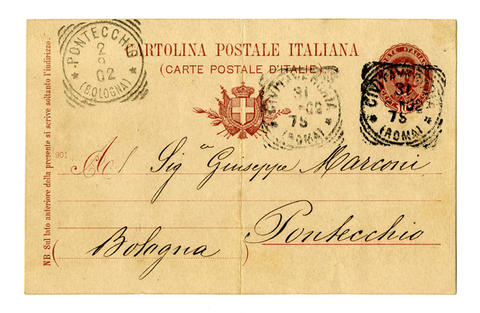 PONTECCHIO
2
02
(BOLOGNA)
CARTOLINA POSTALE ITALIANA
(CARTE POSTALE D'ITALIE)
31
7S
(ROMA)
31
7S
(ROMA)
NB Sul lato anteriore della presente si scrive soltanto l'indirizzo.
901
Al Sig.r Giuseppe Marconi
Pontecchio
Bologna